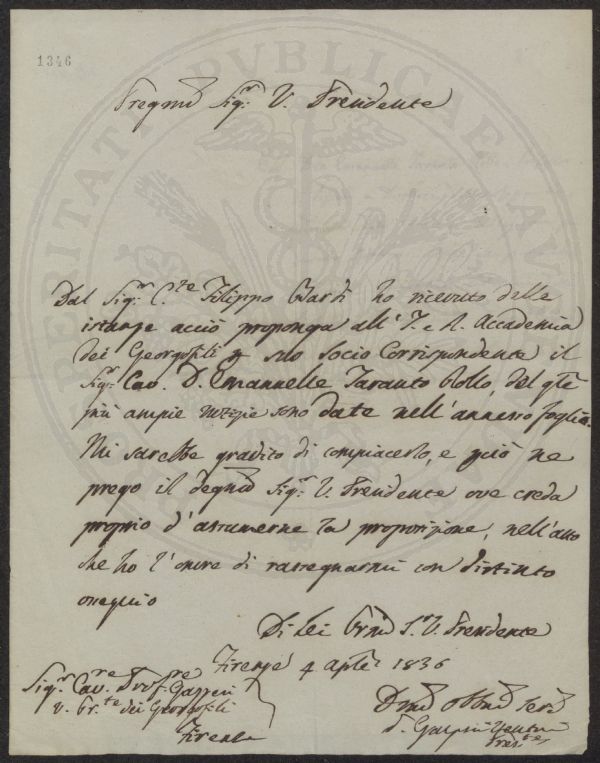 1346
Pregmo Sigr. V. Presidente
Dal Sigr. Cte Filippo Bardi ho ricevuto delle
istanze acciò proponga all'I. e R. Accademia
dei Georgofili p suo Socio Corrispondente il
Sigr. Cav. D. Emanuelle Taranto Rosso, del qle
più ampie notizie sono date nell'annesso foglio.
Mi sarebbe gradito di compiacerlo, e perciò ne
prego il degnmo Sigr. V. Presidente ove creda
proprio d'assumerne la proposizione, nell'atto
che ho l'onore di rassegnarmi con distinto
ossequio
Di Lei Sr. V. Presidente
Firenze 4 aple 1836
Sigr. Cavre Profre Gazzeri
V. Prte dei Georgofili
Firenze
Devmo Obbmo Serv